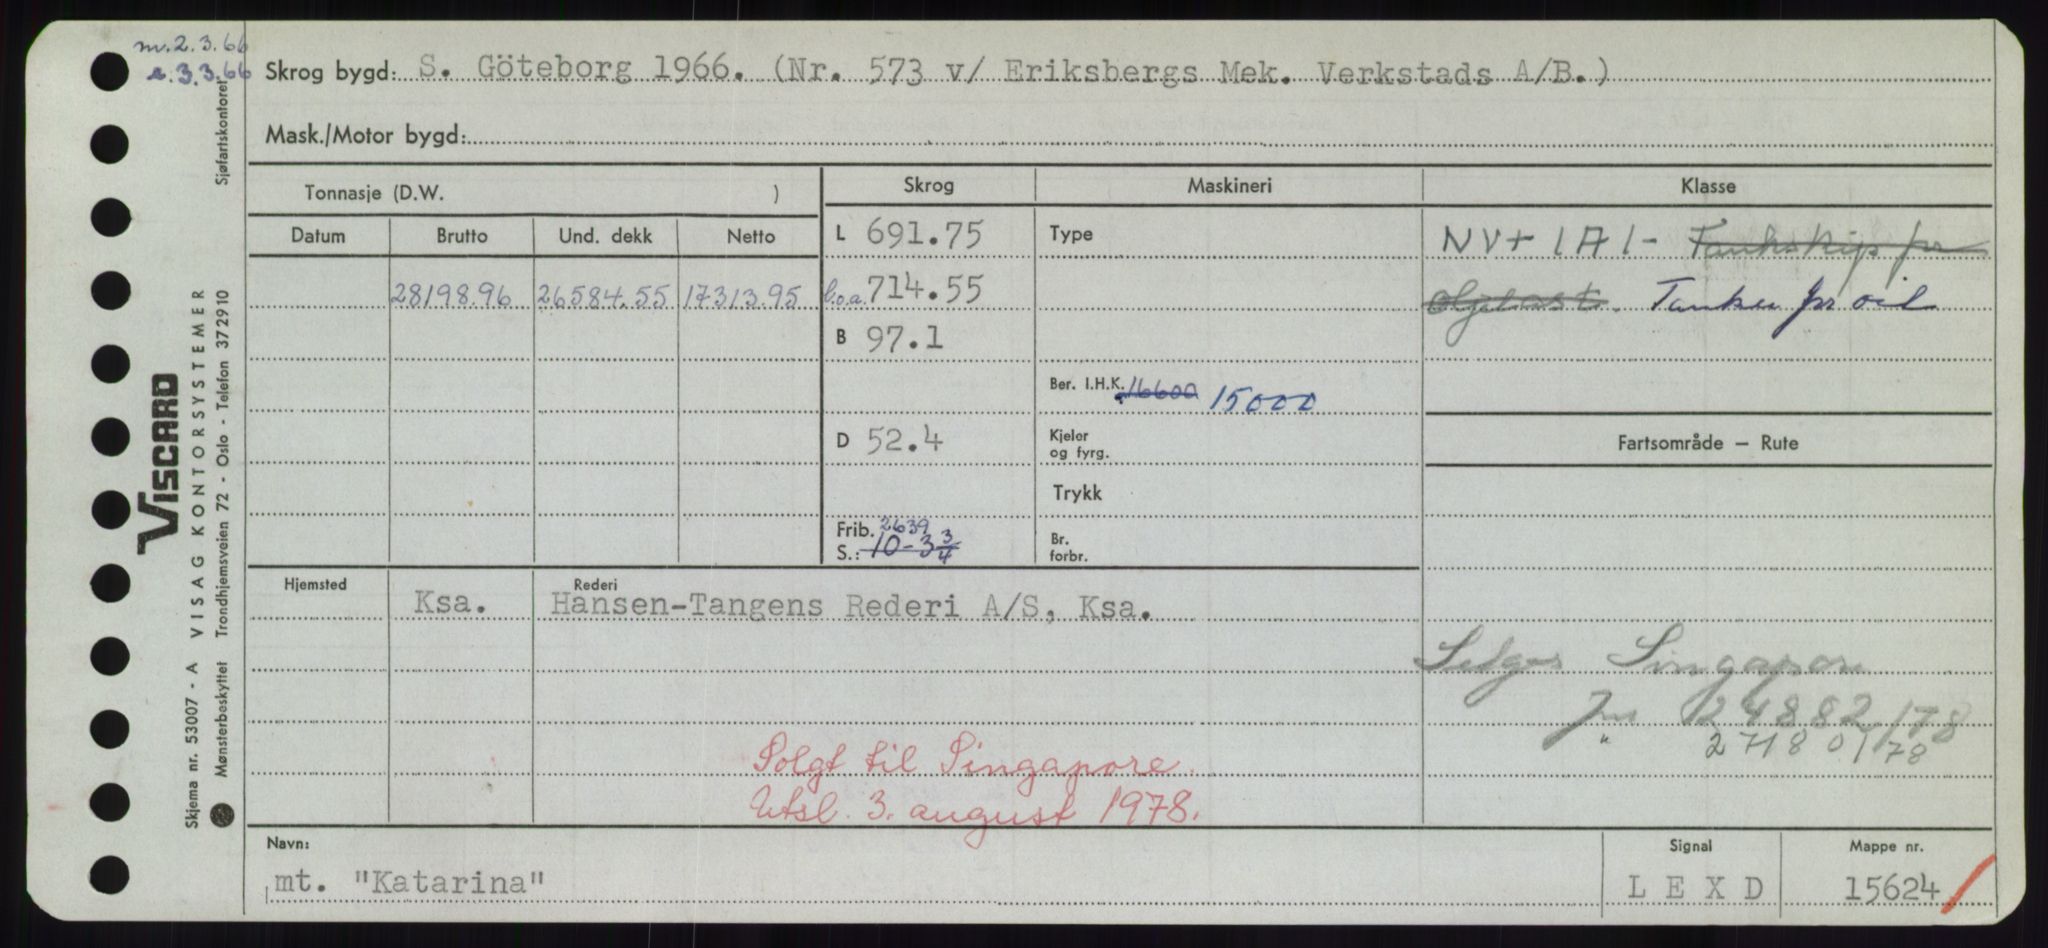 m. 2.3.66
e. 3.3.66
Skrog bygd: S. Göteborg 1966. (Nr. 573 v/ Eriksbergs Mek. Verkstads A/B.)
Mask./Motor bygd:
Tonnasje (D.W. )
Skrog
Maskineri
Klasse
Datum Brutto Und. dekk Netto
28198.96 26584.55 17313.95
L 691.75
l.o.a. 714.55
B 97.1
D 52.4
Frib. 2639
S.: 10-3 3/4
Type
Ber. I.H.K. 16600 15000
Kjeler
og fyrg.
Trykk
Br.
forbr.
NV+ 1A1 - Tankskip for
Oljelast. Tanker for oil
Fartsområde – Rute
Hjemsted
Rederi
Ksa. Hansen-Tangens Rederi A/S, Ksa.
Selges Singapore
Jnr 24882/78
" 271801/78
Solgt til Singapore.
Utsl. 3. august 1978.
Navn:
mt. "Katarina"
Signal
L E X D
Mappe nr.
15624
VISCARD
Skjema nr. 53007 - A VISAG KONTORSYSTEMER
Mønsterbeskyttet Trondhjemsveien 72 - Oslo - Telefon 372910 Sjøfartskontoret